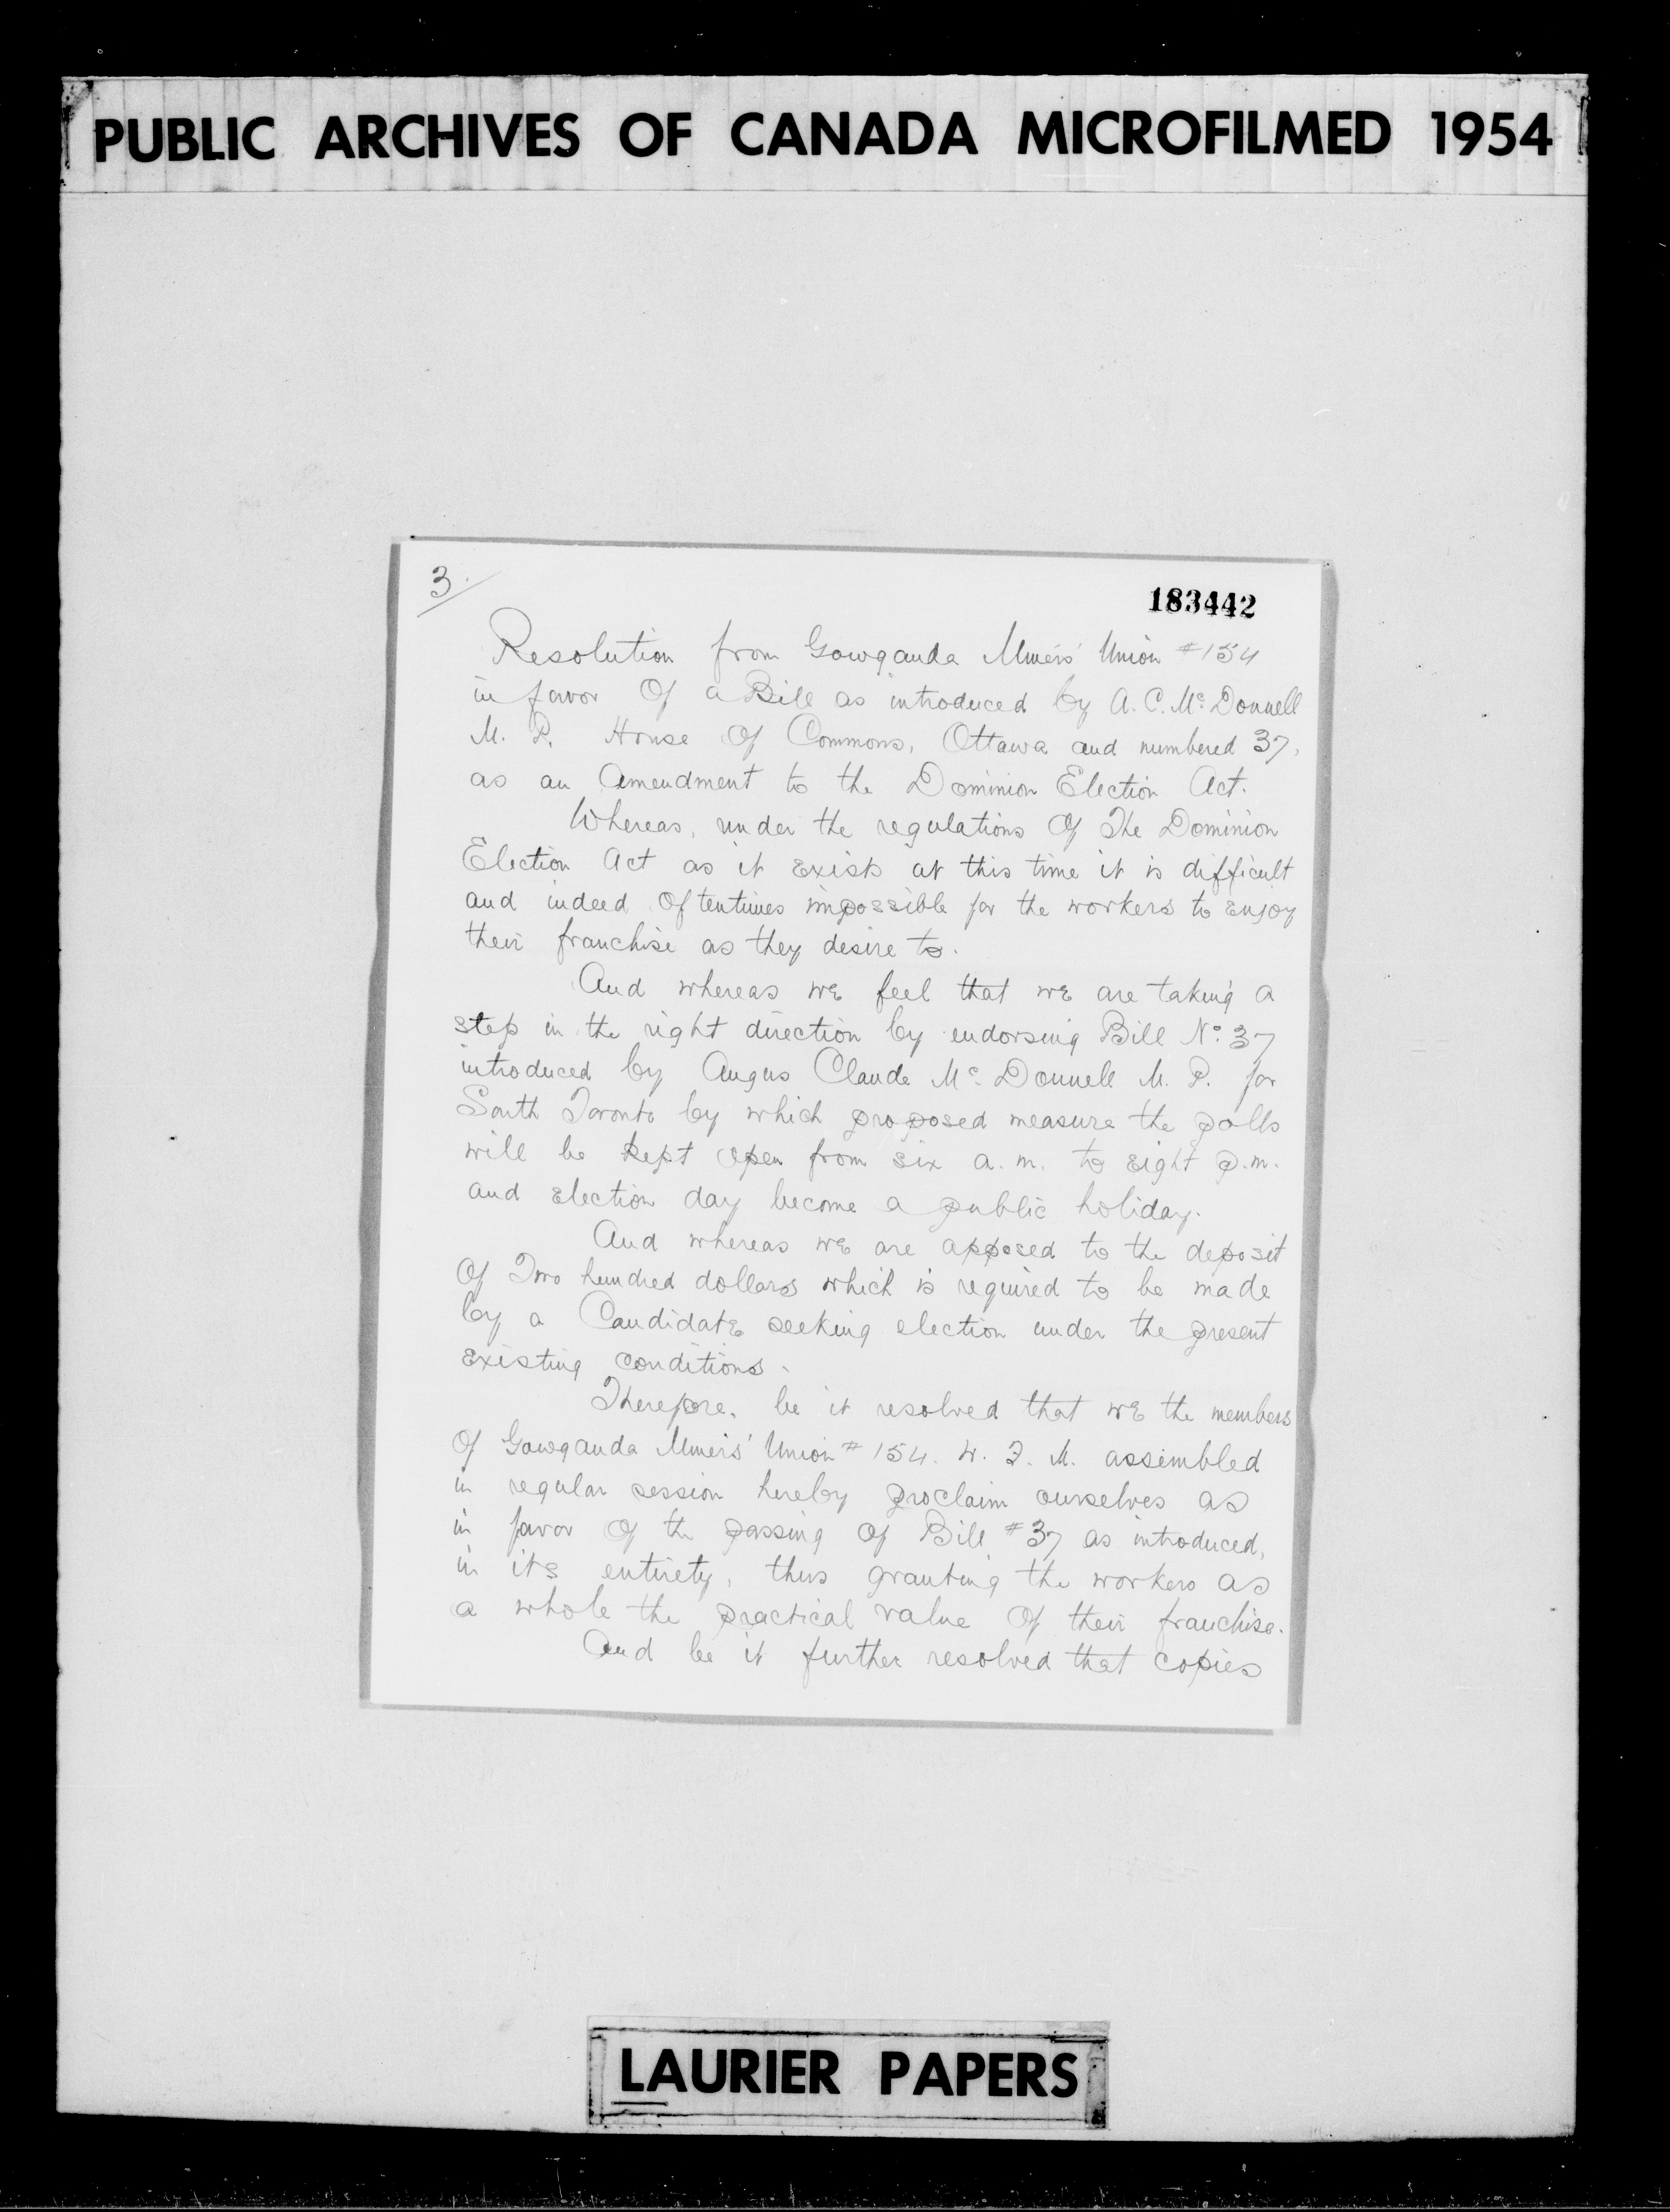 PUBLIC ARCHIVES OF CANADA MICROFILMED 1954
3.
183442
Resolution from Gowganda Miners' Union #154
in favor Of a Bill as introduced by A. C. Mc Donnell
M. P. House Of Commons, Ottawa and numbered 37,
as an Amendment to the Dominion Election Act.
Whereas, under the regulations Of The Dominion
Election Act as it Exists at this time it is difficult
and indeed Oftentimes impossible for the workers to Enjoy
their franchise as they desire to.
And whereas we feel that we are taking a
step in the right direction by endorsing Bill No. 37
introduced by Angus Claude Mc. Donnell M. P. for
South Toronto by which proposed measure the polls
will be kept open from six a.m. to Eight p.m.
and Election day become a public holiday.
And whereas we are apposed to the deposit
Of Two hundred dollars which is required to be made
by a Candidate seeking election under the present
Existing conditions.
Therefore, be it resolved that we the members
Of Gowganda Miners' Union #154. W. F. M. assembled
in regular session hereby proclaim ourselves as
in favor Of the passing Of Bill #37 as introduced,
in its entirety, thus granting the workers as
a whole the practical value Of their franchise.
And be it further resolved that copies
LAURIER PAPERS